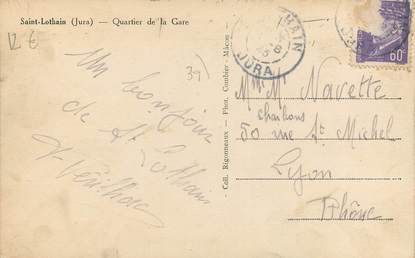 Saint-Lothain (Jura) — Quartier de la Gare
12 €
39
Un bonjour
de St Lothain
Coll. Rigonneaux — Phot. Combier - Mâcon
JURA
60
Navette
charbons
50 rue St Michel
Lyon
Rhône